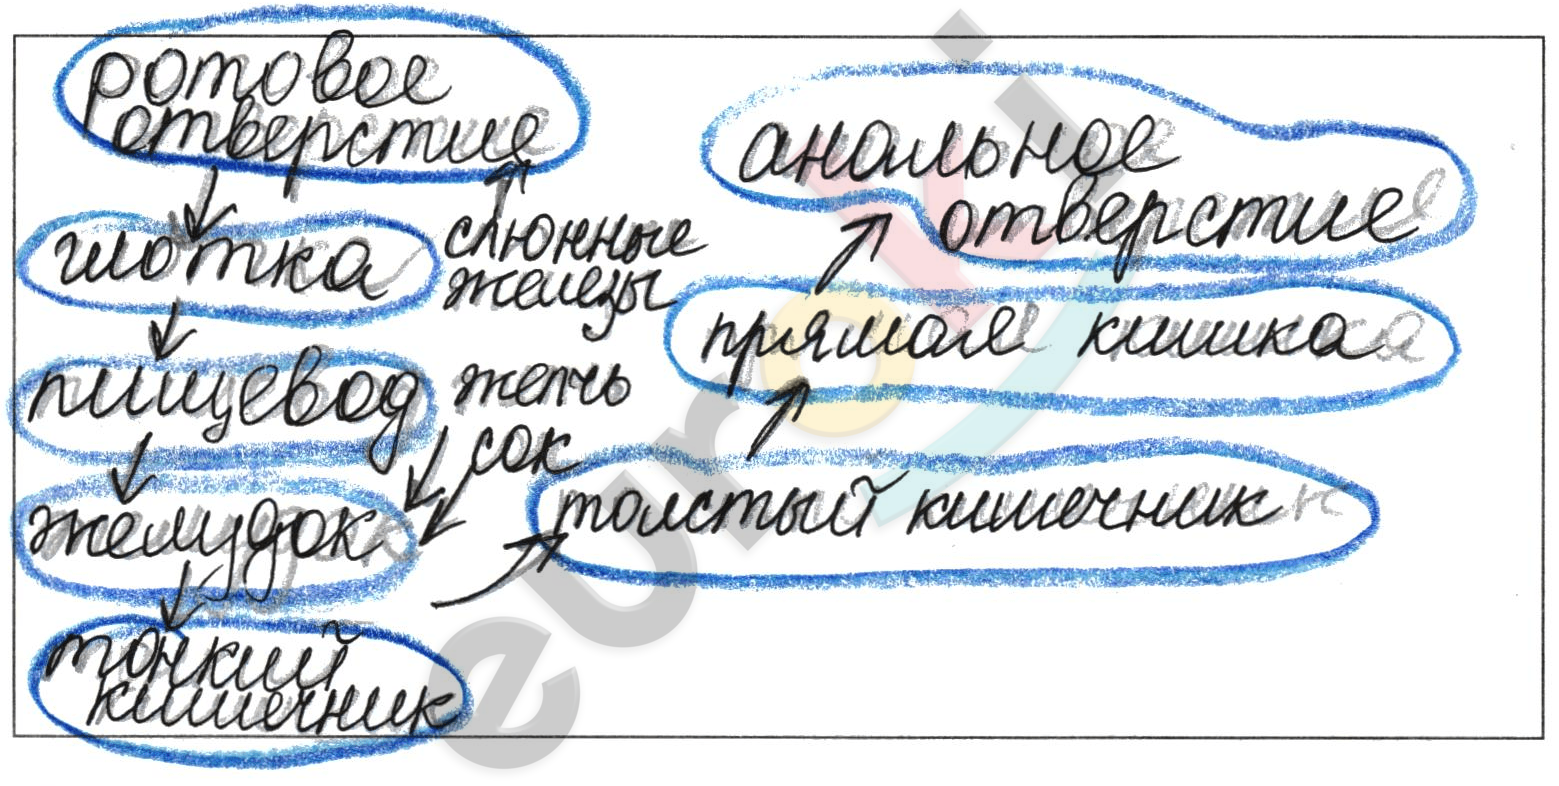 ротовое
отверстие
глотка
слюнные
железы
пищевод
желчь
сок
желудок
тонкий
кишечник
толстый кишечник
прямая кишка
анальное
отверстие
euroki